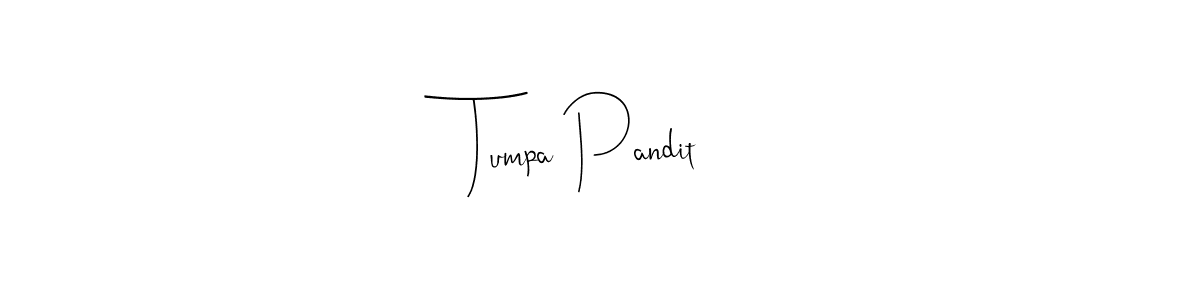 Tumpa Pandit